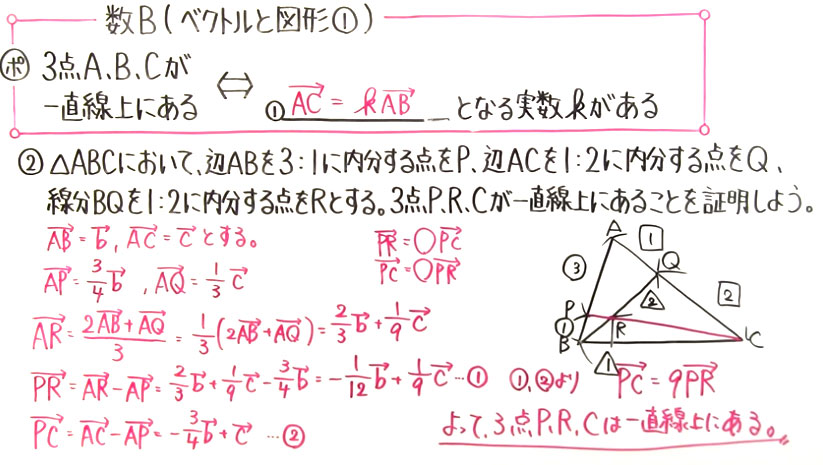 数B(ベクトルと図形①)
ポ 3点A、B、Cが
一直線上にある ⇔ ① AC→ = kAB→ となる実数kがある
② △ABCにおいて、辺ABを3:1に内分する点をP、辺ACを1:2に内分する点をQ、
線分BQを1:2に内分する点をRとする。3点P、R、Cが一直線上にあることを証明しよう。
AB→ = b→, AC→ = c→とする。
AP→ = 3/4 b→, AQ→ = 1/3 c→
PR→ = ○PC→
PC→ = ○PR→
AR→ = (2AB→ + AQ→)/3 = 1/3(2AB→ + AQ→) = 2/3 b→ + 1/9 c→
PR→ = AR→ - AP→ = 2/3 b→ + 1/9 c→ - 3/4 b→ = -1/12 b→ + 1/9 c→ …①
PC→ = AC→ - AP→ = -3/4 b→ + c→ …②
A
1
③
Q
2
P
2
①
R
B
C
1
①、②より PC→ = 9PR→
よって、3点P、R、Cは一直線上にある。